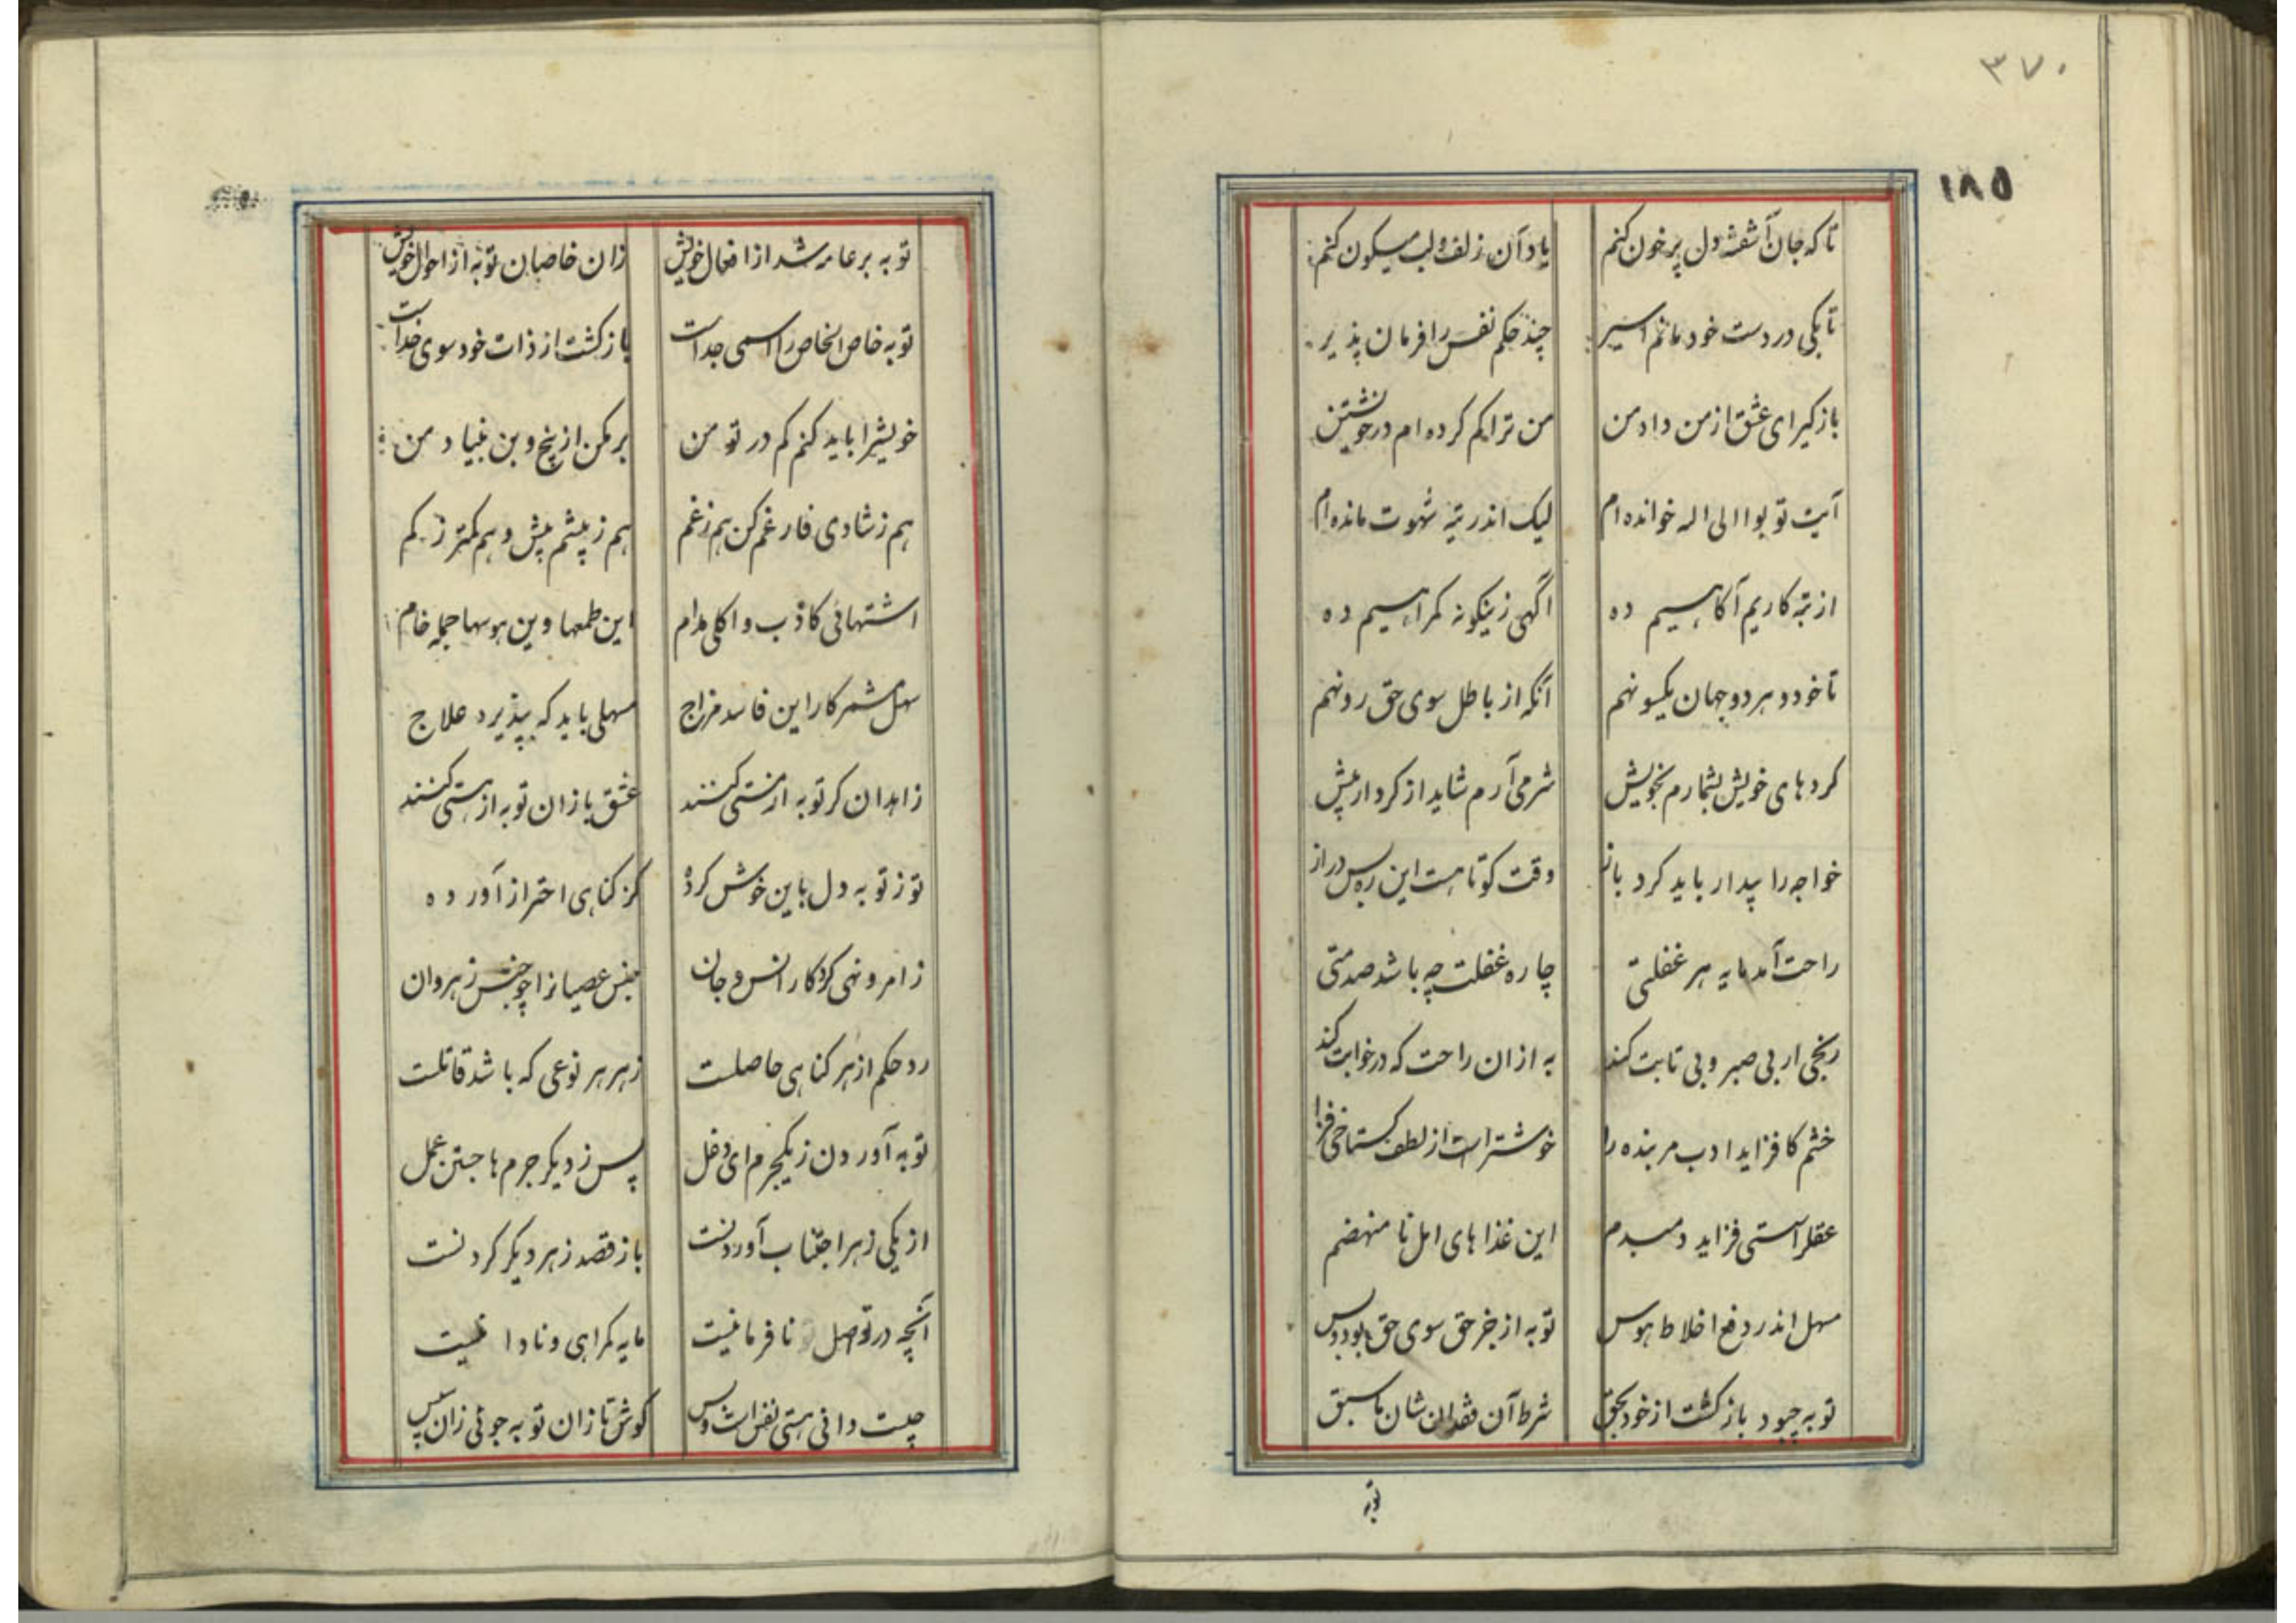 ۳۷۰
۱۸۵
تا که جان آشفته دل پر خون کنم یاد آن زلف و لب میگون کنم
تا بکی در دست خود مانم اسیر چند حکم نفس را فرمان پذیر
باز گیر ای عشق از من داد من من ترا کم کرده ام در خویشتن
آیت توبوا الی اله خوانده ام لیک اندر تیه شهوت مانده ام
از تبه کاریم آگاهیم ده آگهی زینگونه گمراهیم ده
تا خود و هر دو جهان یکسو نهم آنگه از باطل سوی حق رو نهم
کردهای خویش بشمارم بخویش شرمی آرم شاید از کردار پیش
خواجه را بیدار باید کرد باز وقت کوتاهست این ره بس دراز
راحت آمد مایه هر غفلتی چاره غفلت چه باشد صدمتی
رنجی ار بی صبر و بی تابت کند به از ان راحت که در خوابت کند
خشم کافزاید ادب مر بنده را خوشتر است از لطف گستاخی فزا
سستی فزاید دمبدم این غذاهای امل نا منهضم
مسهل اندر دفع اخلاط هوس توبه از جز حق سوی حق بود و بس
توبه چبود باز گشت از خود بحق شرط آن فقدان شان ما سبق
توبه
توبه بر عامه شد از افعال خویش زان خاصان توبه از احوال خویش
توبه خاص الخاص را اسمی جداست باز گشت از ذات خود سوی خداست
خویش را باید کنم کم در تو من بر کن از بیخ و بن بنیاد من
هم ز شادی فارغم کن هم ز غم هم ز بیشم بیش و هم کمتر ز کم
اشتهائی کاذب و اکلی مدام این طمعها وین هوسها جمله خام
سهل مشمر کار این فاسد مزاج مسهلی باید که بپذیرد علاج
زاهدان گر توبه از مستی کنند عشق بازان توبه از هستی کنند
تو ز توبه دل باین خوش کردهٔ کز گناهی احتراز آورده
ز امر و نهی کردگار انس و جان جنس عصیانرا چو جنس زهر دان
رد حکم از هر گناهی حاصلست زهر هر نوعی که باشد قاتلست
توبه آوردن ز یکجرم ای دغل پس ز دیگر جرم ها جستن عمل
از یکی زهر اجتناب آوردنست باز قصد زهر دیگر کردنست
آنچه در تو اصل نافرمانیست مایه گمراهی و نادانیست
چیست دانی هستی نفس است و بس کوش تا زان توبه جوئی زان سپس